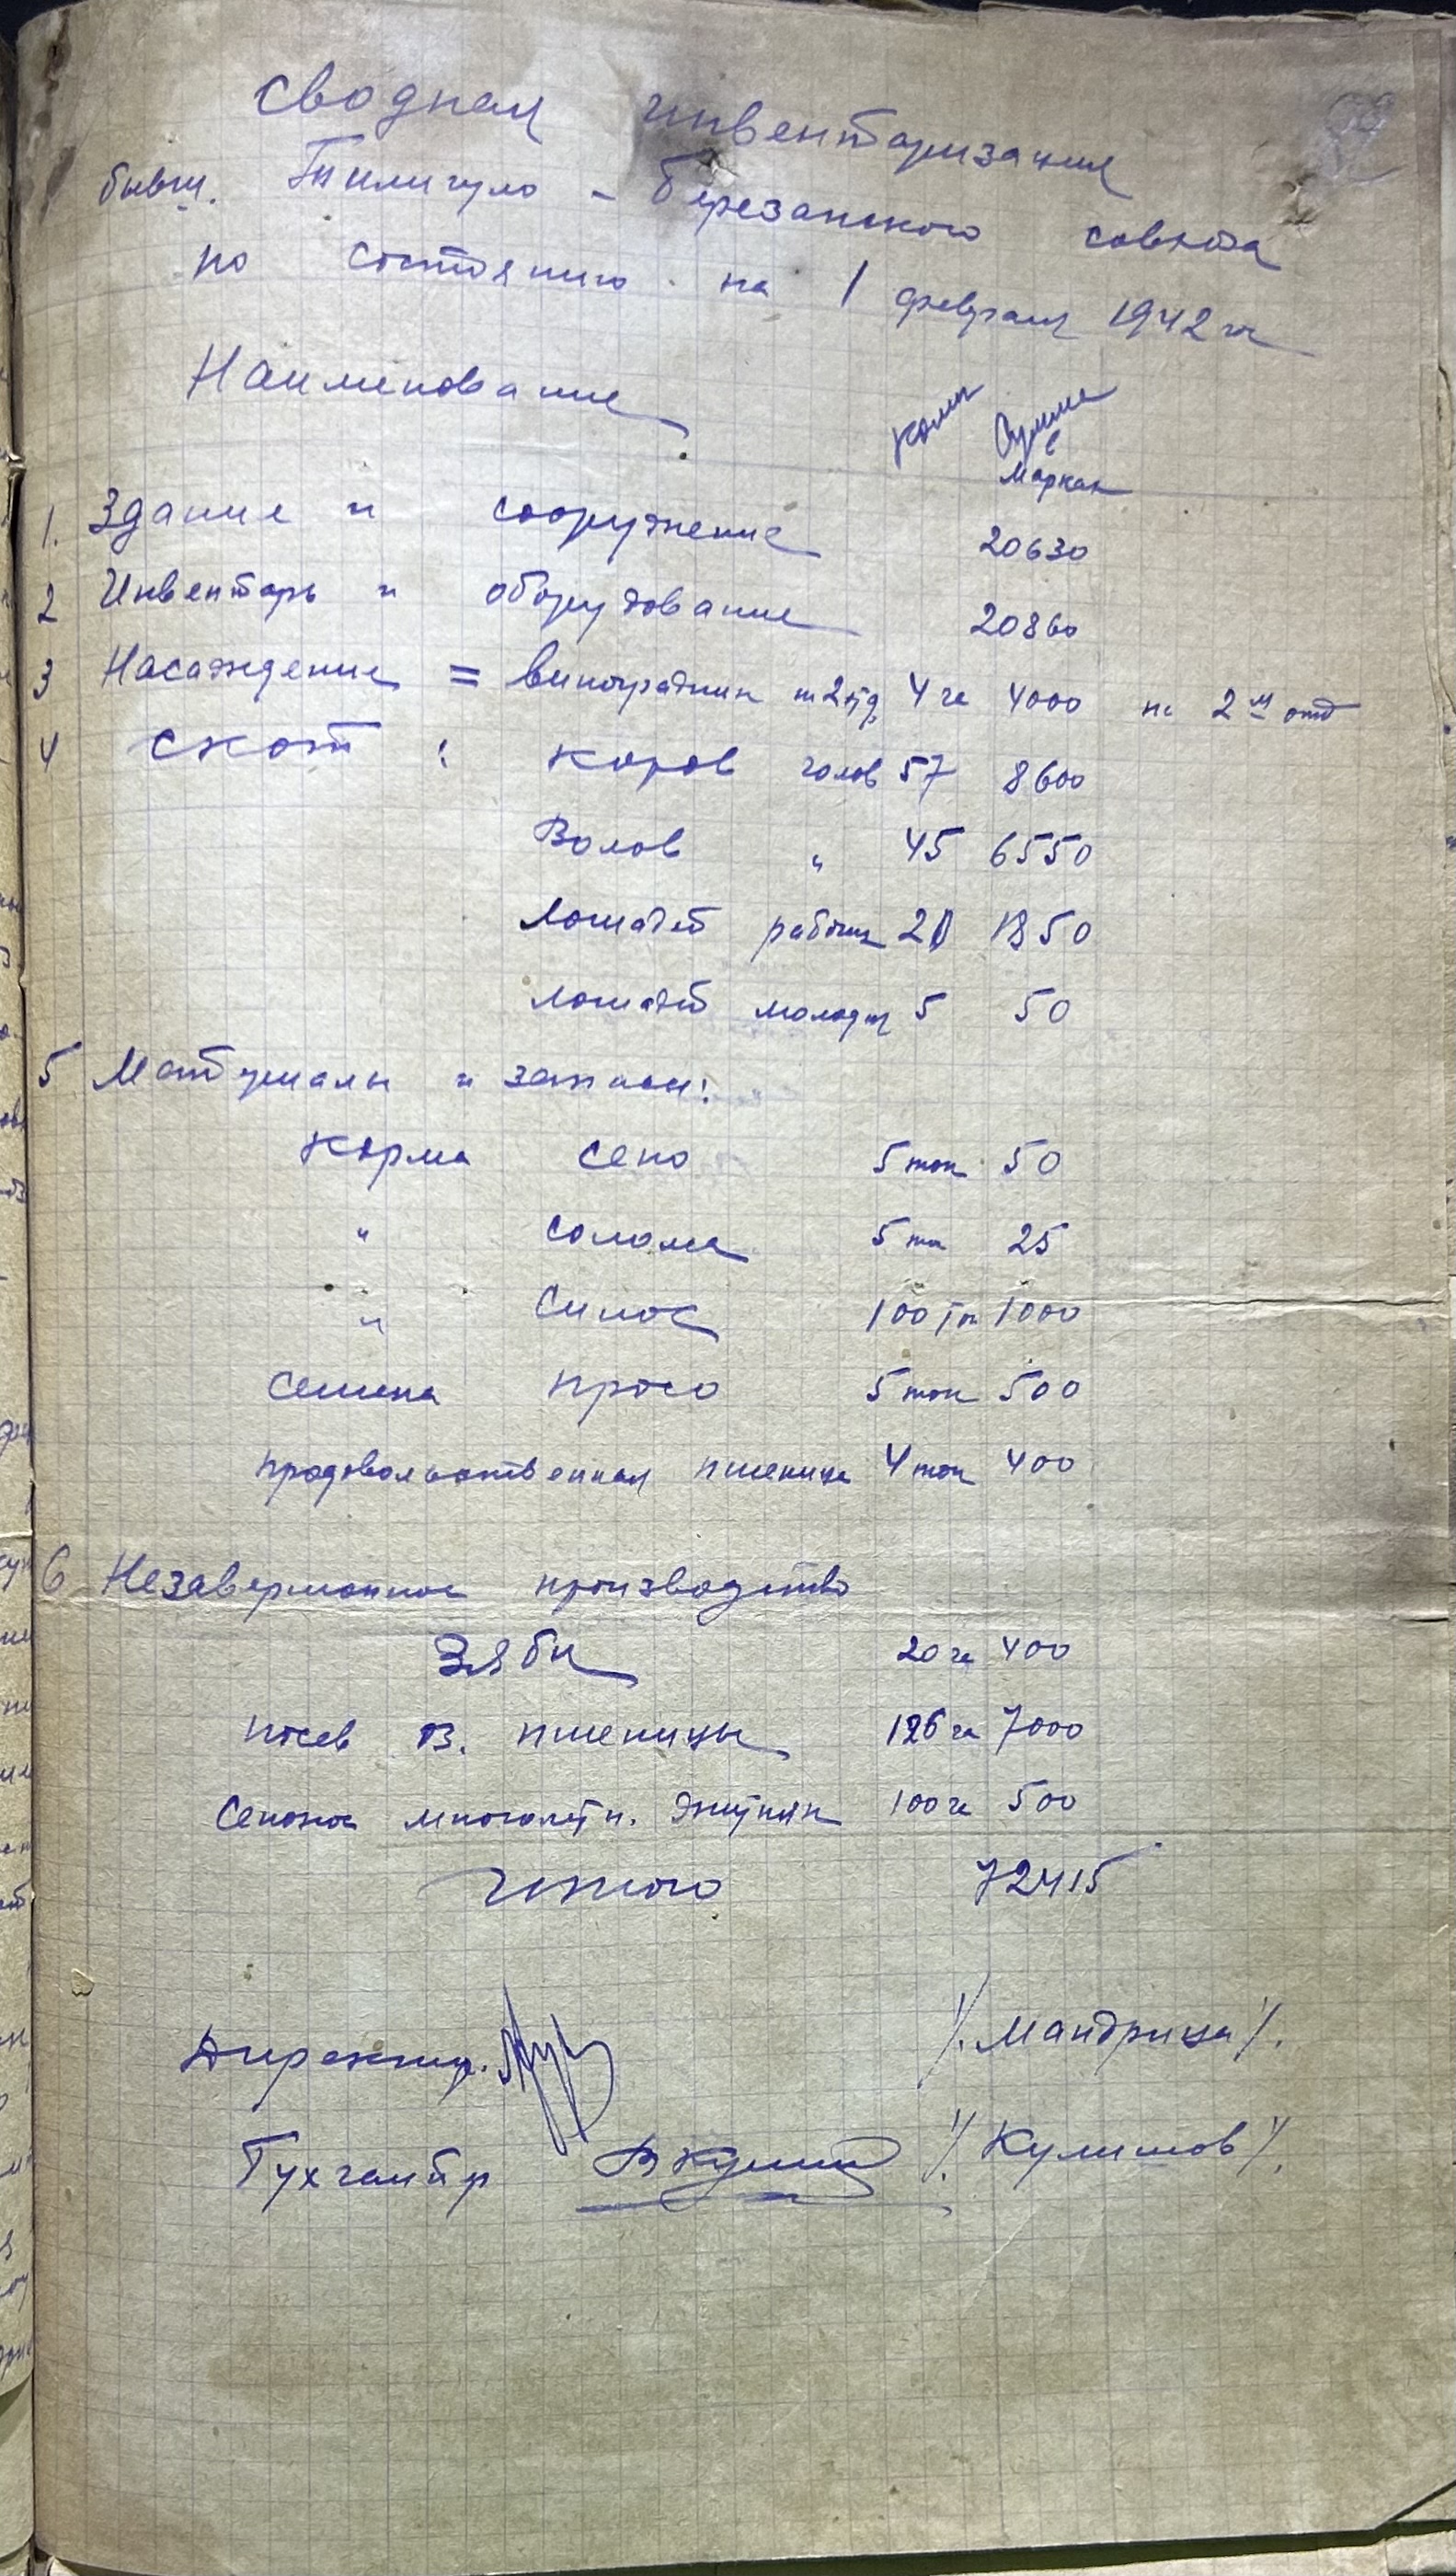 Сводная инвентаризация
бывш. Тилигуло-Березанского совхоза
по состоянию на 1 февраля 1942 г
Наименование Колич Сумма в марках
1. Здание и сооружение 20630
2 Инвентарь и оборудование 20860
3 Насаждение = виноградник 4 га 4000 на 2м отд
4 Скот: коров голов 57 8600
Волов " 45 6550
Лошадей рабочих 1850
лошадей молодн 5 50
5 Материалы и запасы:
Корма сено 5 тон 50
" солома 5 тн 25
" силос 100 тн 1000
Семена просо 5 тон 500
продовольственная пшеница 4 тон 400
6 Незавершонное производство
Зяби 20 га 400
посев оз. пшеницы 126 га 7000
Сенокос многолетн. 100 га 500
Итого 72415
Директор. /Мандрица/.
Бухгалтер /Кулишов/.